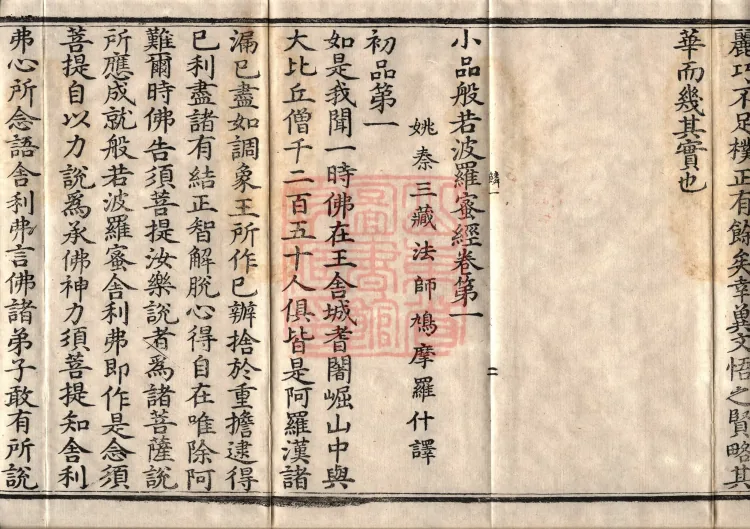 麗巧不足樸正有餘矣幸冀文悟之賢略其
華而幾其實也
小品般若波羅蜜經卷第一
姚秦三藏法師鳩摩羅什譯
初品第一
如是我聞一時佛在王舍城耆闍崛山中與
大比丘僧千二百五十人俱皆是阿羅漢諸
漏已盡如調象王所作已辦捨於重擔逮得
已利盡諸有結正智解脫心得自在唯除阿
難爾時佛告須菩提汝樂說者為諸菩薩說
所應成就般若波羅蜜舍利弗即作是念須
菩提自以力說為承佛神力須菩提知舍利
弗心所念語舍利弗言佛諸弟子敢有所說